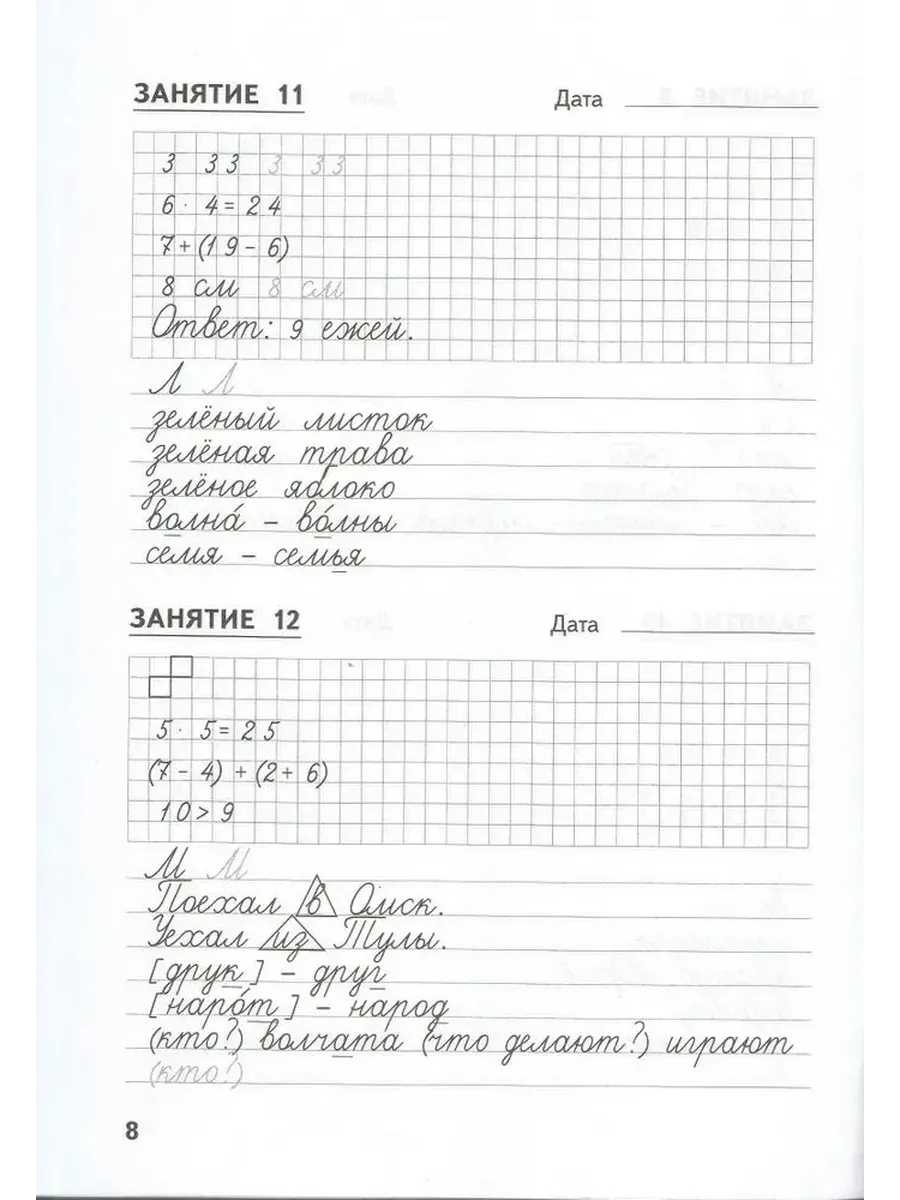 ЗАНЯТИЕ 11 Дата
3 33 3 33
6 · 4 = 24
7 + (19 - 6)
8 см 8 см
Ответ: 9 ежей.
Л Л
зелёный листок
зелёная трава
зелёное яблоко
волна́ – во́лны
семя – семья
ЗАНЯТИЕ 12 Дата
5 · 5 = 25
(7 - 4) + (2 + 6)
10 > 9
М М
Поехал в Омск.
Уехал из Тулы.
[друк] – друг
[наро́т] – народ
(кто?) волчата (что делают?) играют
(кто?)
8